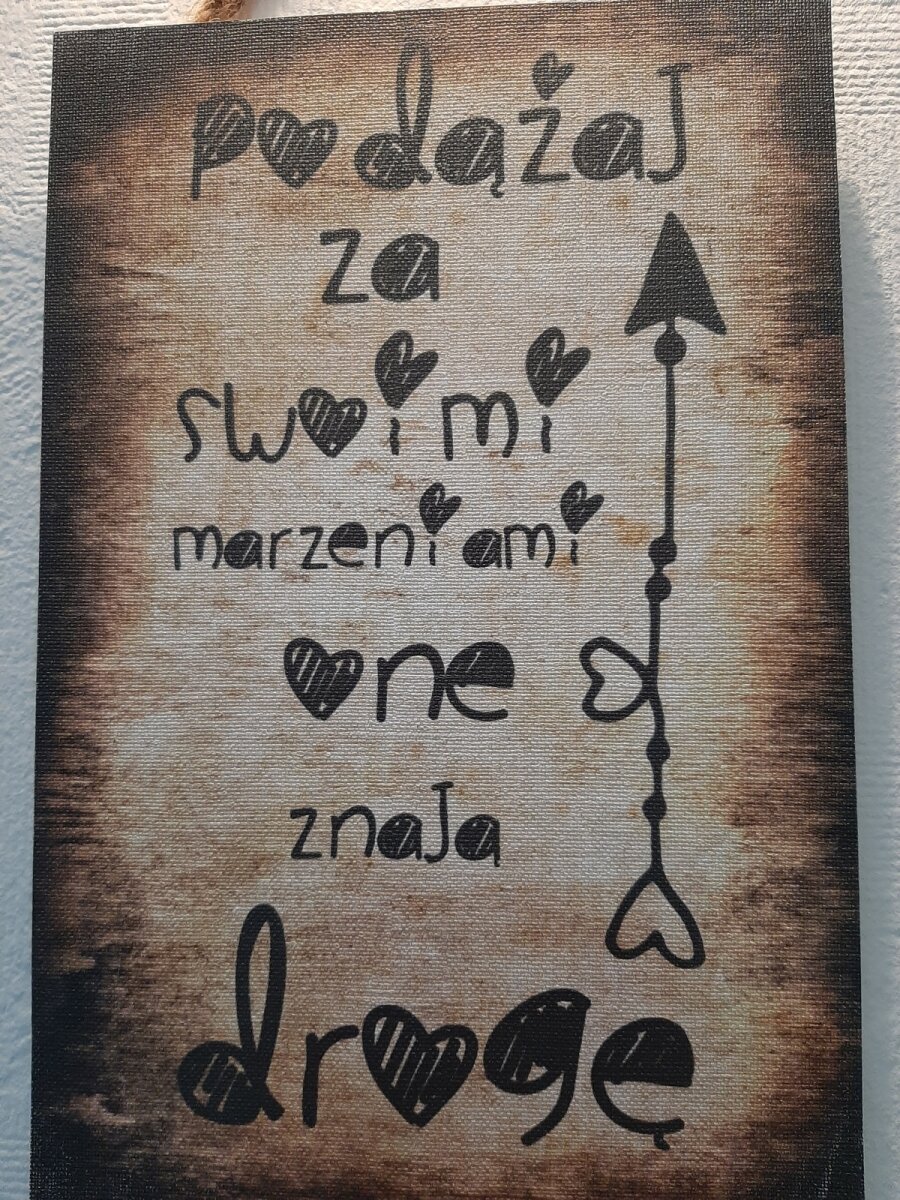 podążaj
za
swoimi
marzeniami
one
znają
drogę